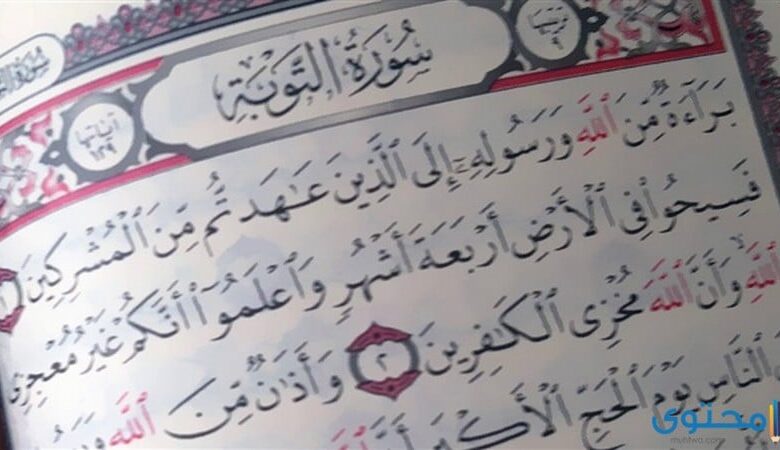 سُورَةُ التَّوۡبَةِ
ترتيبها ٩
آياتها ١٢٩
بَرَآءَةٌ مِّنَ ٱللَّهِ وَرَسُولِهِۦٓ إِلَى ٱلَّذِينَ عَٰهَدتُّم مِّنَ ٱلۡمُشۡرِكِينَ ١
فَسِيحُواْ فِي ٱلۡأَرۡضِ أَرۡبَعَةَ أَشۡهُرٖ وَٱعۡلَمُوٓاْ أَنَّكُمۡ غَيۡرُ مُعۡجِزِي
ٱللَّهِ وَأَنَّ ٱللَّهَ مُخۡزِي ٱلۡكَٰفِرِينَ ٢ وَأَذَٰنٞ مِّنَ ٱللَّهِ
ٱلنَّاسِ يَوۡمَ ٱلۡحَجِّ ٱلۡأَكۡبَرِ أَنَّ
محتوى
muhtwa.com